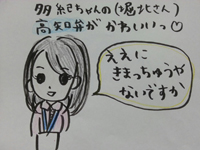 多紀ちゃんの(堀北さん)
高知弁が かわいいっ♡
ええに
きまっちゅうや
ないですか